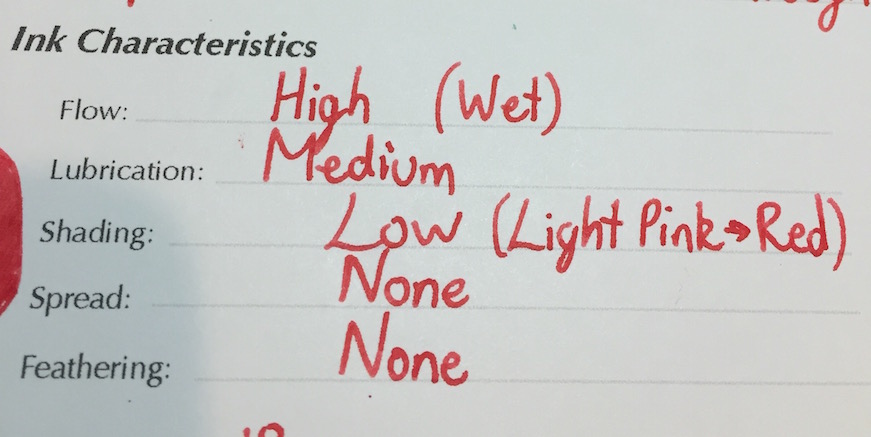 Ink Characteristics
Flow: High (Wet)
Lubrication: Medium
Shading: Low (Light Pink→Red)
Spread: None
Feathering: None